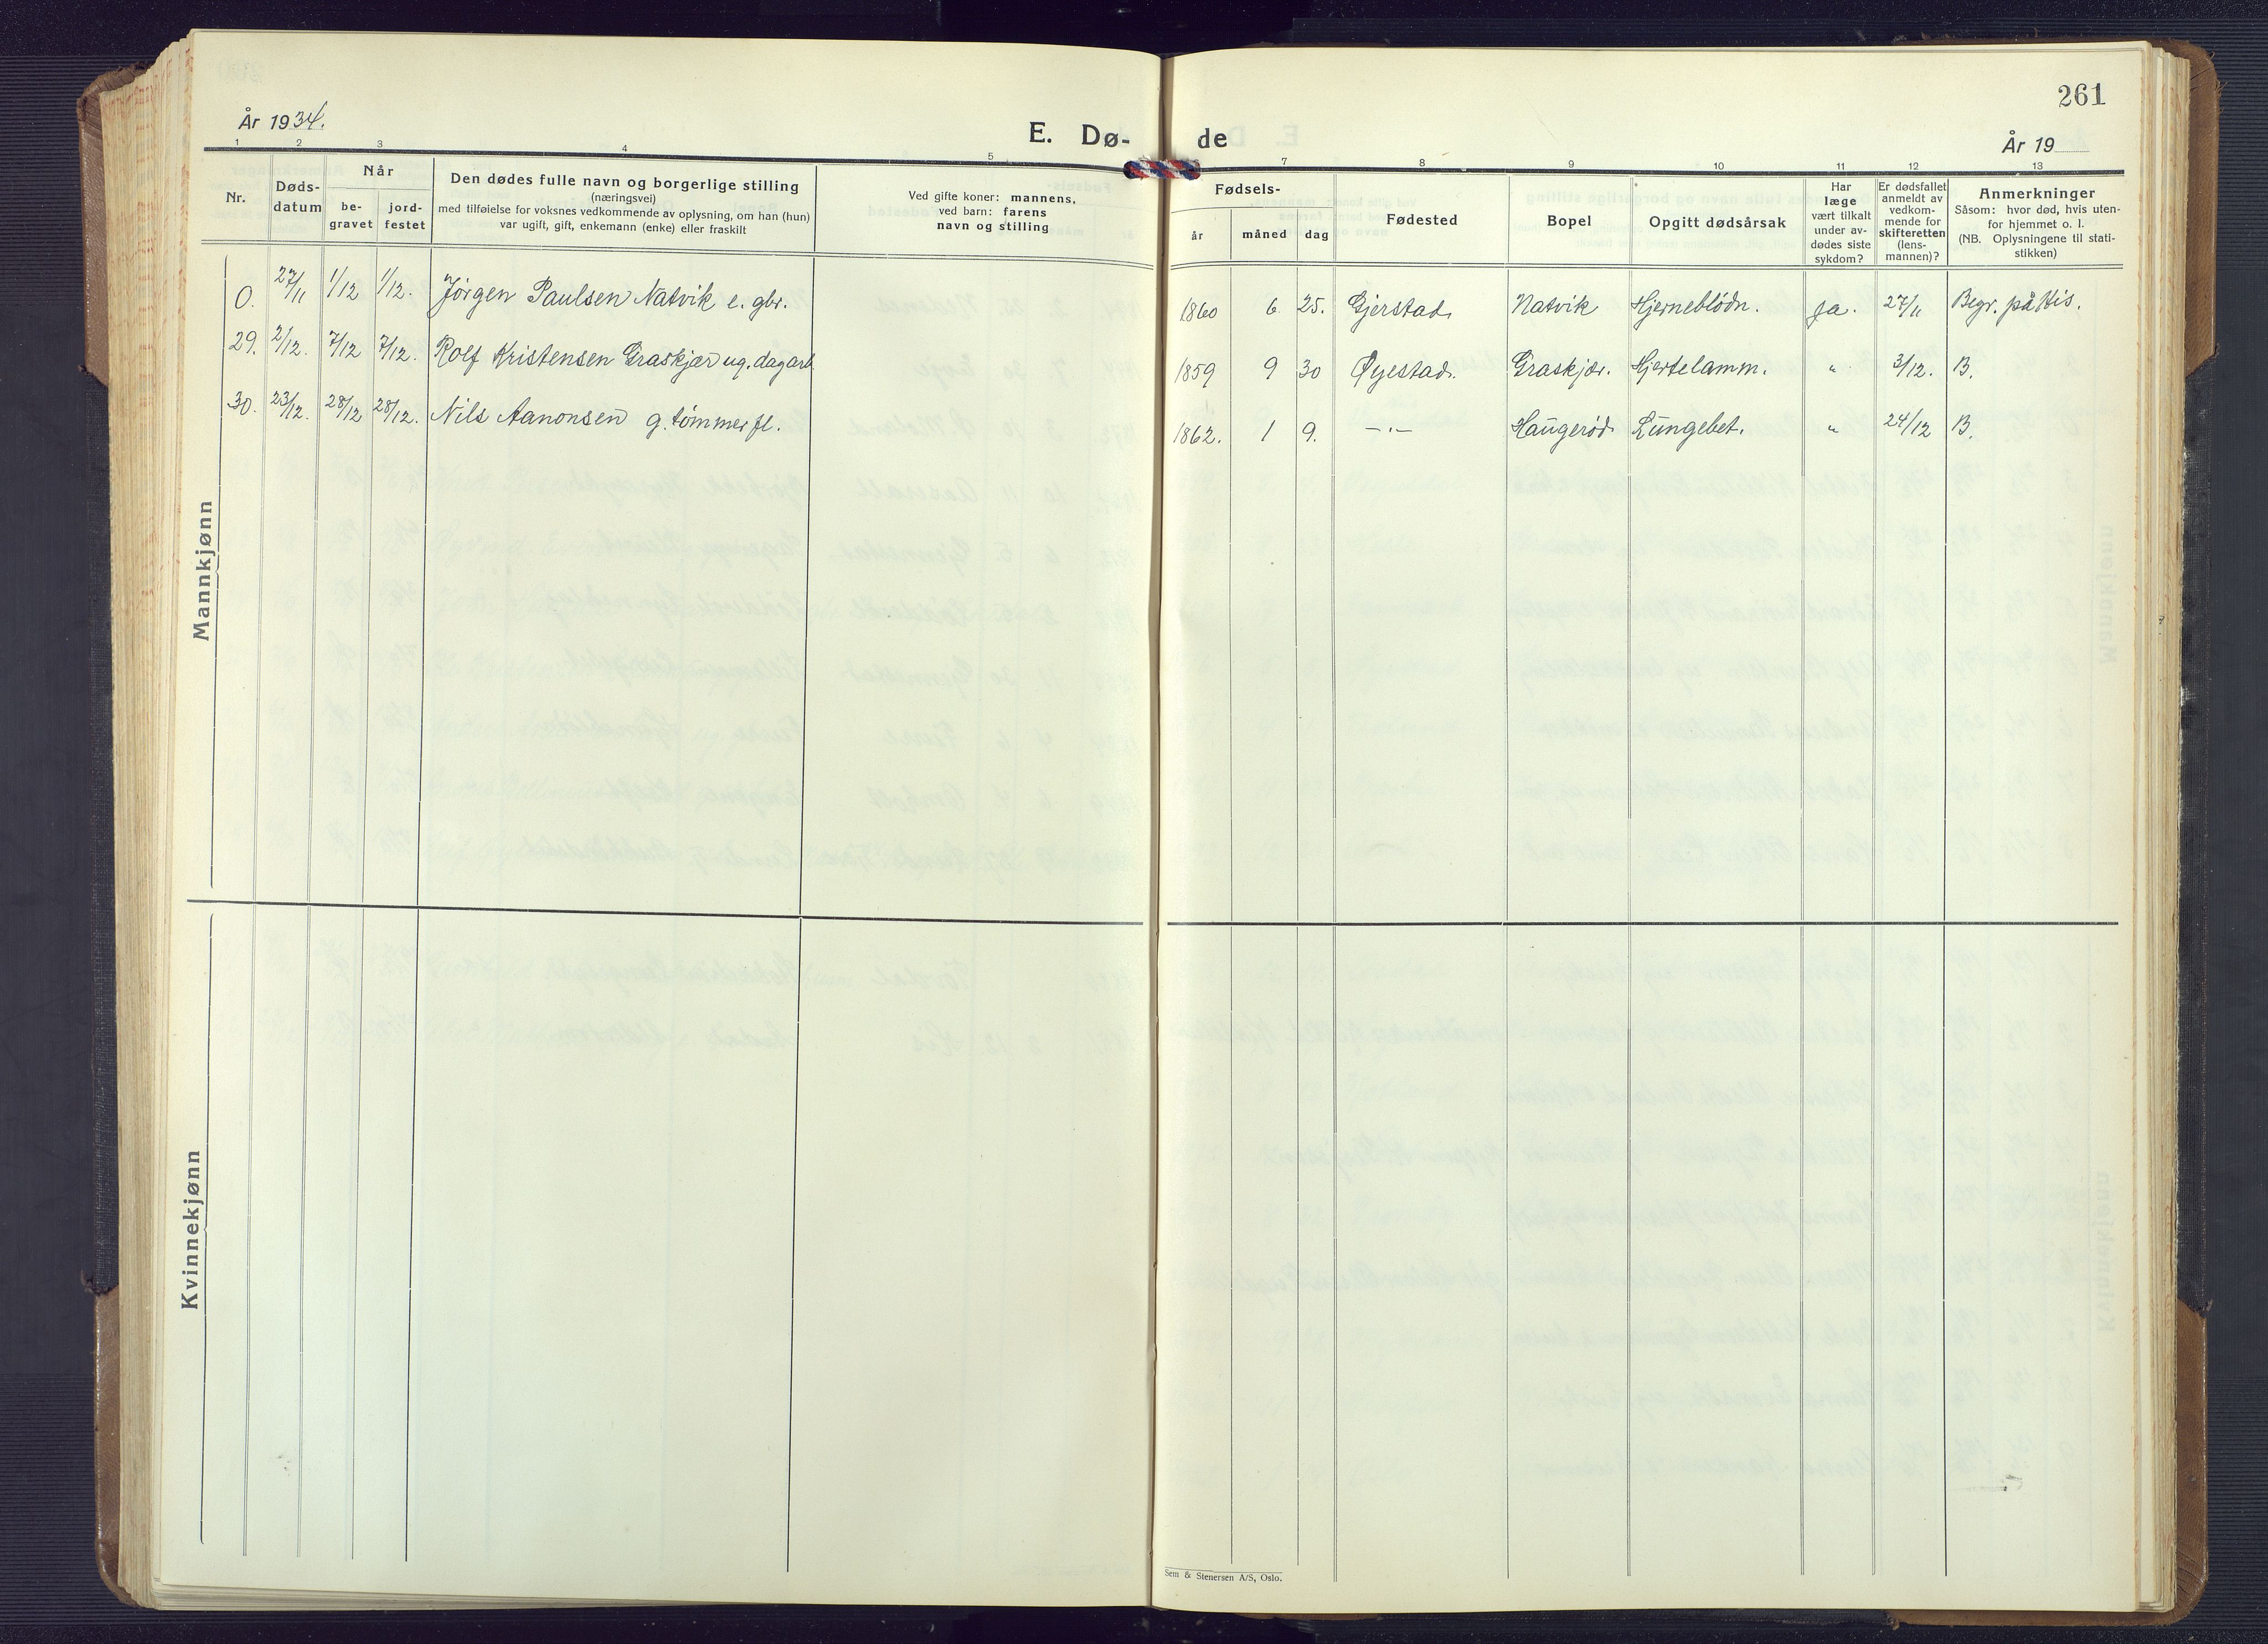 261
År 1934.
E. Dø-
de
År 19
1 2 3 4 5 7 8 9 10 11 12 13
Nr.
Døds-
datum
Når
be-
gravet
jord-
festet
Den dødes fulle navn og borgerlige stilling
(næringsvei)
med tilføielse for voksnes vedkommende av oplysning, om han (hun)
var ugift, gift, enkemann (enke) eller fraskilt
Ved gifte koner: mannens,
ved barn: farens
navn og stilling
Fødsels-
år
måned
dag
Fødested
Bopel
Opgitt dødsårsak
Har
læge
vært tilkalt
under av-
dødes siste
sykdom?
Er dødsfallet
anmeldt av
vedkom-
mende for
skifteretten
(lens-
mannen)?
Anmerkninger
Såsom: hvor død, hvis uten-
for hjemmet o. l.
(NB. Oplysningene til stati-
stikken)
Mannkjønn
0. 27/11 1/12 1/12. Jørgen Paulsen Natvik e. gbr. 1860 6 25. Gjerstad Natvik Hjerneblødn. ja. 27/11 Begr. på His.
29. 2/12. 7/12 7/12. Rolf Kristensen Graskjær ug. dagarb 1859 9 30 Øyestad. Graskjær. Hjertelamm. " 3/12. B.
30. 23/12. 28/12 28/12. Nils Aanonsen g. tømmerfl. 1862. 1 9. -"- Haugerød Lungebet. " 24/12 B.
Kvinnekjønn
Sem & Stenersen A/S, Oslo.